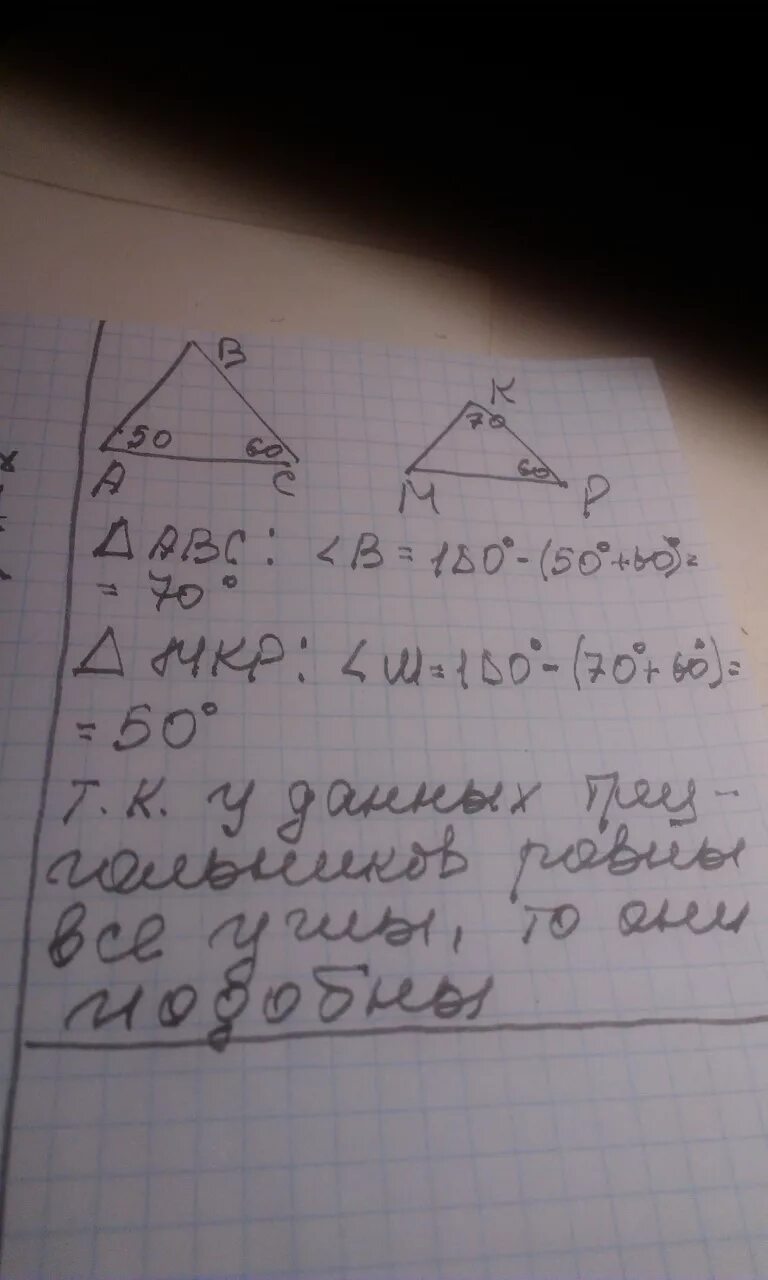 B
K
50
60
70
60
A
C
M
P
Δ ABC: ∠B = 180° - (50° + 60°) =
= 70°
Δ MKP: ∠M = 180° - (70° + 60°) =
= 50°
Т.к. у данных треу-
гольников равны
все углы, то они
подобны